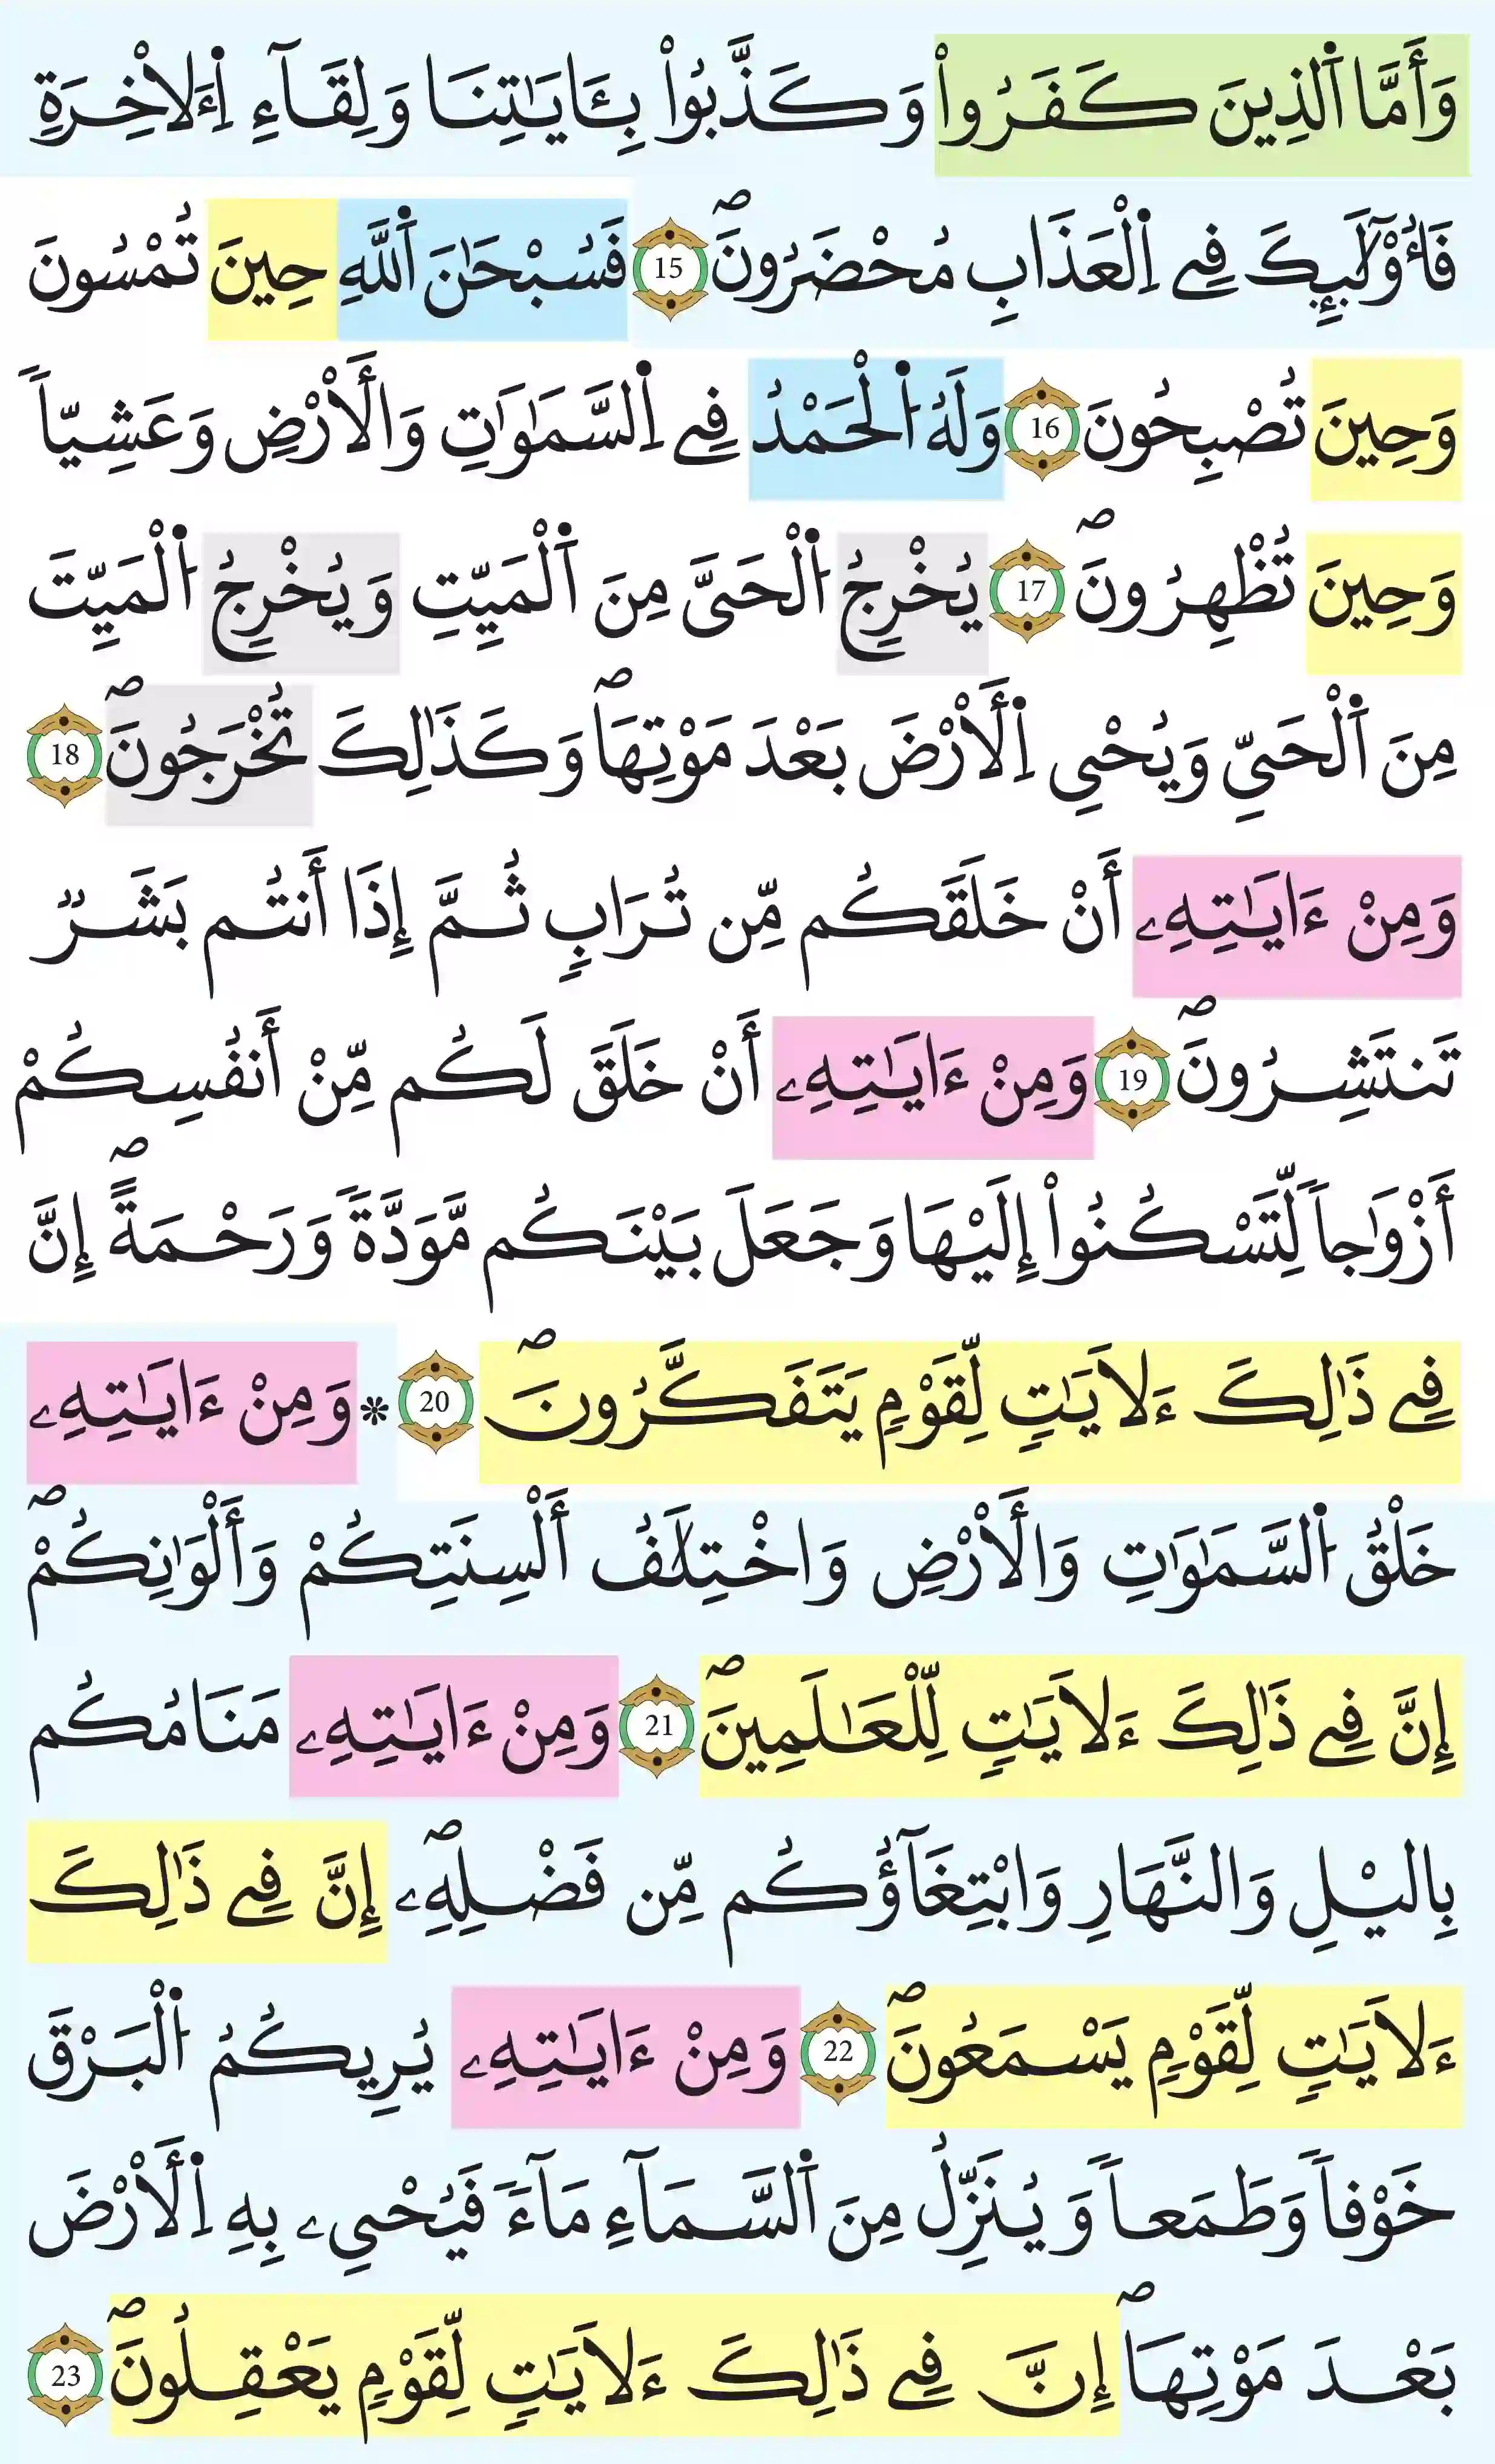 وَأَمَّا اَ۬لذِينَ كَفَرُواْ وَكَذَّبُواْ بِـَٔايَٰتِنَا وَلِقَآءِ اِ۬ءَلاْخِرَةِ
فَأُوْلَٰٓئِكَ فِے اِ۬لْعَذَابِ مُحْضَرُونَۖ 15 فَسُبْحَٰنَ اَ۬للَّهِ حِينَ تُمْسُونَ
وَحِينَ تُصْبِحُونَ 16 وَلَهُ اُ۬لْحَمْدُ فِے اِ۬لسَّمَٰوَٰتِ وَالْأَرْضِ وَعَشِيّاٗ
وَحِينَ تُظْهِرُونَۖ 17 يُخْرِجُ اُ۬لْحَىَّ مِنَ اَ۬لْمَيِّتِ وَيُخْرِجُ اُ۬لْمَيِّتَ
مِنَ اَ۬لْحَىِّ وَيُحْىِ اِ۬لْأَرْضَ بَعْدَ مَوْتِهَاۖ وَكَذَٰلِكَ تُخْرَجُونَۖ 18
وَمِنْ ءَايَٰتِهِۦ أَنْ خَلَقَكُم مِّن تُرَابٖ ثُمَّ إِذَا أَنتُم بَشَرٞ
تَنتَشِرُونَۖ 19 وَمِنْ ءَايَٰتِهِۦ أَنْ خَلَقَ لَكُم مِّنْ أَنفُسِكُمْ
أَزْوَٰجاٗ لِّتَسْكُنُواْ إِلَيْهَا وَجَعَلَ بَيْنَكُم مَّوَدَّةٗ وَرَحْمَةًۖ إِنَّ
فِے ذَٰلِكَ ءَلَايَٰتٖ لِّقَوْمٖ يَتَفَكَّرُونَۖ 20 * وَمِنْ ءَايَٰتِهِۦ
خَلْقُ اُ۬لسَّمَٰوَٰتِ وَالْأَرْضِ وَاخْتِلَٰفُ أَلْسِنَتِكُمْ وَأَلْوَٰنِكُمْۖ
إِنَّ فِے ذَٰلِكَ ءَلَايَٰتٖ لِّلْعَٰلَمِينَۖ 21 وَمِنْ ءَايَٰتِهِۦ مَنَامُكُم
بِاليْلِ وَالنَّهَارِ وَابْتِغَآؤُكُم مِّن فَضْلِهِۦۖ إِنَّ فِے ذَٰلِكَ
ءَلَايَٰتٖ لِّقَوْمٖ يَسْمَعُونَۖ 22 وَمِنْ ءَايَٰتِهِۦ يُرِيكُمُ اُ۬لْبَرْقَ
خَوْفاٗ وَطَمَعاٗ وَيُنَزِّلُ مِنَ اَ۬لسَّمَآءِ مَآءٗ فَيُحْىِۦ بِهِ اِ۬لْأَرْضَ
بَعْدَ مَوْتِهَاۖ إِنَّ فِے ذَٰلِكَ ءَلَايَٰتٖ لِّقَوْمٖ يَعْقِلُونَۖ 23